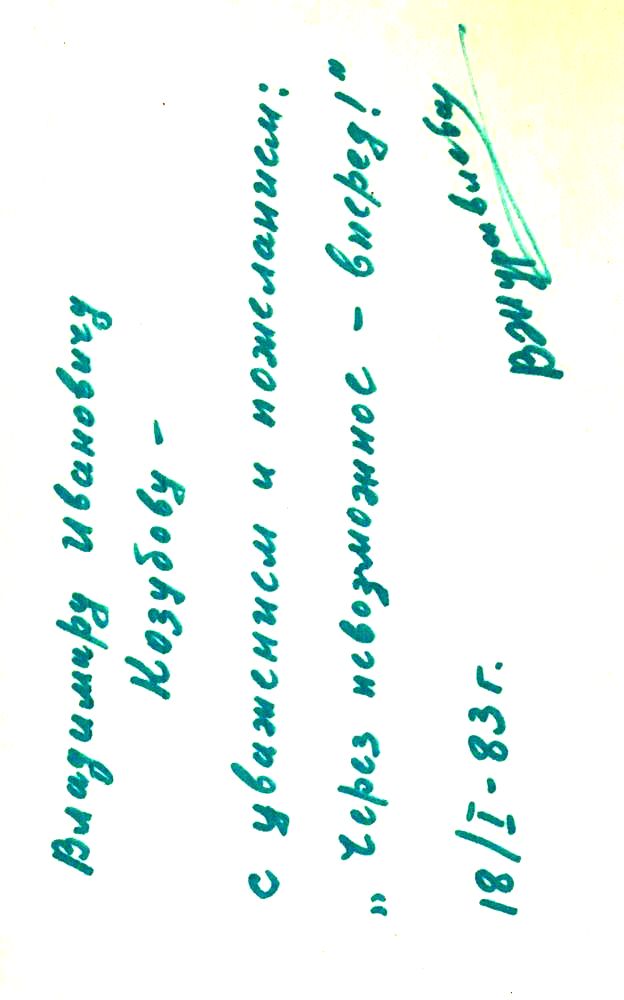 Владимиру Ивановичу
Козубову –
с уважением и пожеланием:
„Через невозможное – вперед!“
18/I-83 г.